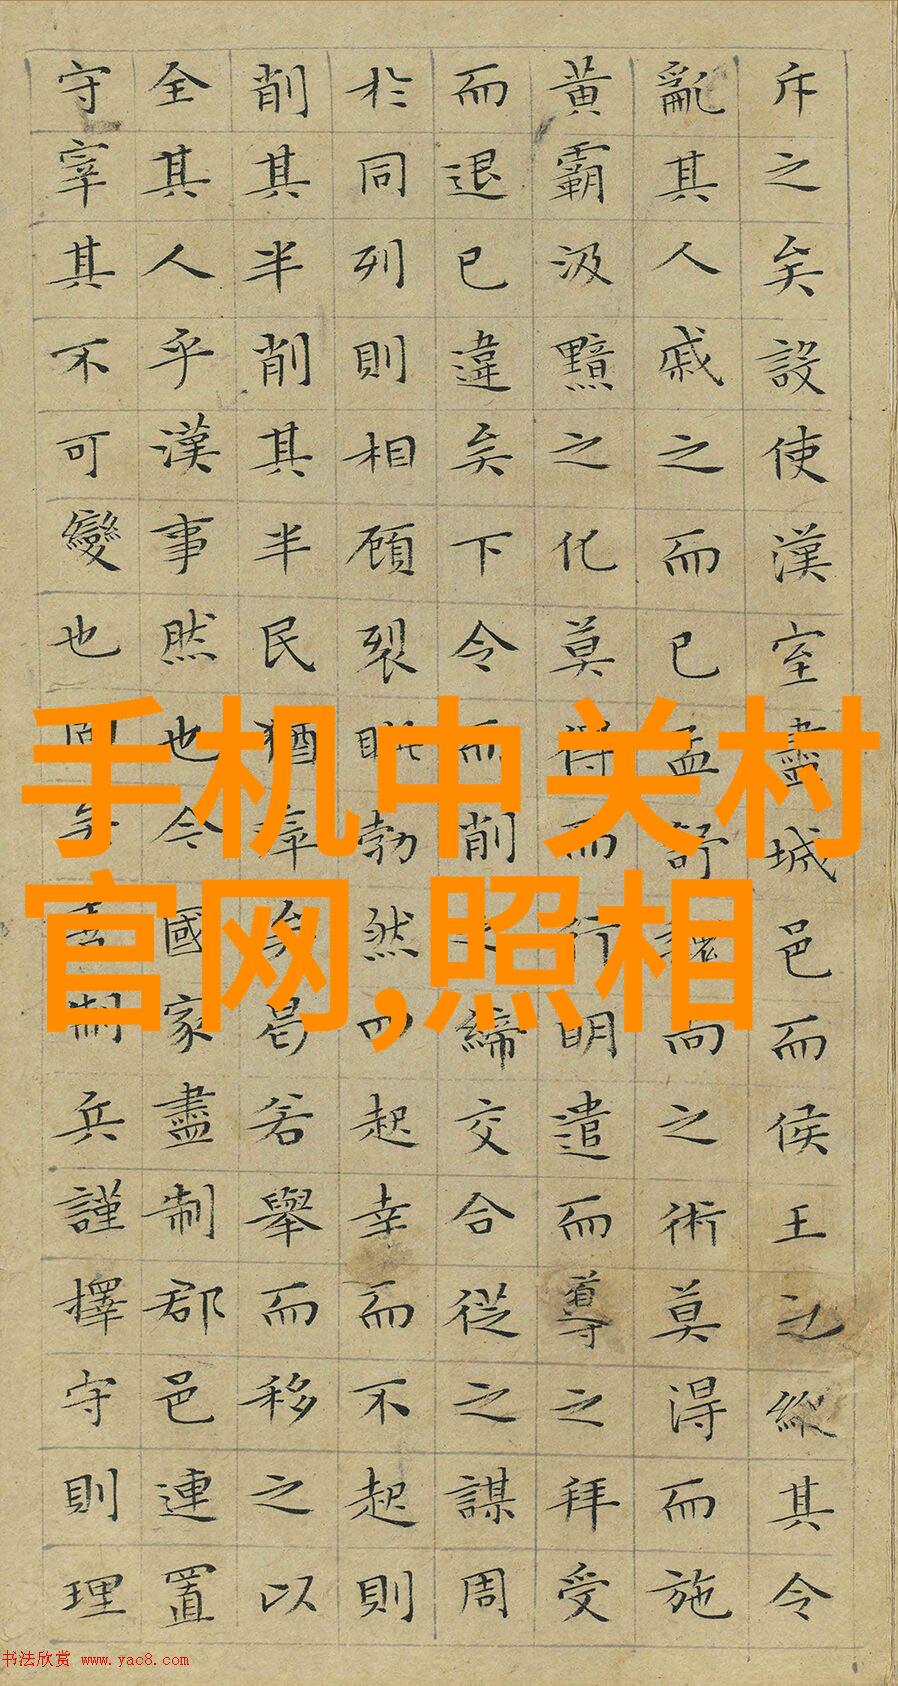 斥之矣設使漢室盡城邑而侯王之縱其令
亂其人戚之而已孟舒魏尚之術莫得而施
黃霸汲黯之化莫得而行明遣而導之拜受
而退已違矣下令而削之締交合從之謀周
於同列則相顧裂眦勃然而起幸而不起則
削其半削其半民猶瘁矣曷若舉而移之以
全其人乎漢事然也今國家盡制郡邑連置
守宰其不可變也固矣善制兵謹擇守則理
手机中关村
官网,照相
书法欣赏 www.yac8.com